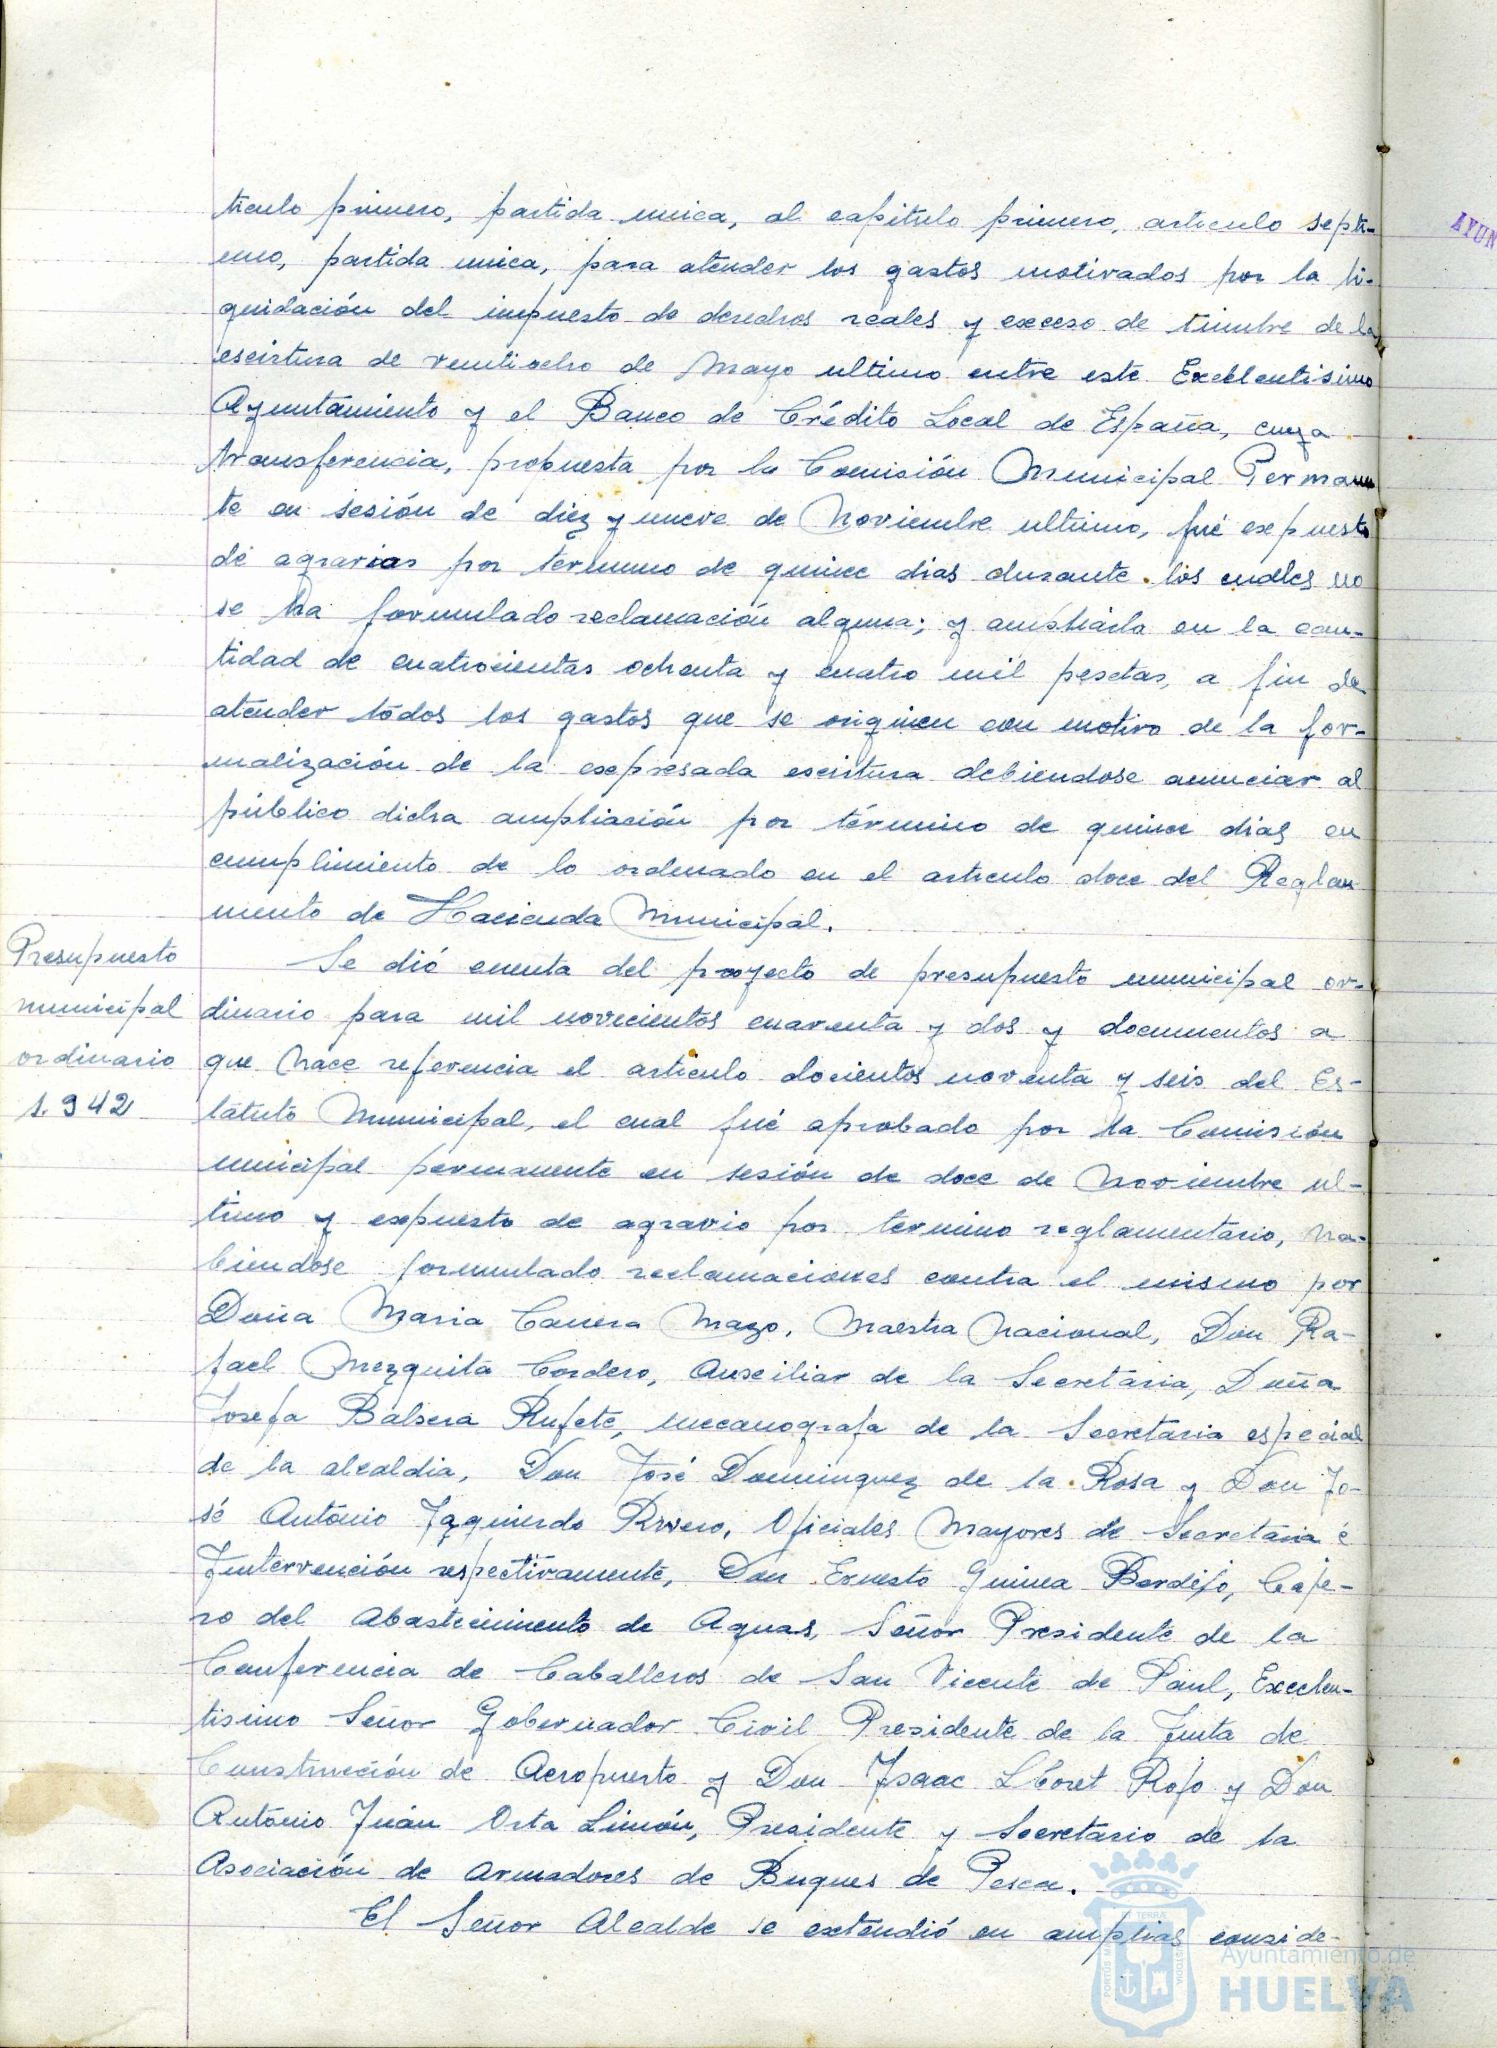 ticulo primero, partida unica, al capitulo primero, articulo septi-
AYUN
mo, partida unica, para atender los gastos motivados por la li-
quidación del impuesto de derechos reales y exceso de timbre de la
escritura de ventiocho de Mayo ultimo entre este Excelentisimo
Ayuntamiento y el Banco de Crédito Local de España, cuya
transferencia, propuesta por la Comisión Municipal Permanen
te en sesión de diez y nueve de Noviembre ultimo, fué expuesta
de agravios por termino de quince dias durante los cuales no
se ha formulado reclamación alguna; y ampliarla en la can-
tidad de cuatrocientas ochenta y cuatro mil pesetas, a fin de
atender todos los gastos que se originen con motivo de la for-
malización de la expresada escritura debiendose anunciar al
público dicha ampliación por término de quince dias en
cumplimiento de lo ordenado en el articulo doce del Reglam
mento de Hacienda Municipal.
Presupuesto
municipal
ordinario
1.942
Se dió cuenta del proyecto de presupuesto municipal or-
dinario para mil novecientos cuarenta y dos y documentos a
que hace referencia el articulo docientos noventa y seis del Es-
tatuto Municipal, el cual fué aprobado por la Comisión
municipal permanente en sesión de doce de Noviembre ul-
timo y expuesto de agravio por termino reglamentario, ha-
biendose formulado reclamaciones contra el mismo por
Doña Maria Mazo, Maestra Nacional, Don Ra-
fael Mezquita Cordero, Auxiliar de la Secretaria, Doña
Josefa Balsera Rufete, mecanografa de la Secretaria especial
de la alcaldia, Don José Dominguez de la Rosa y Don Jo-
sé Antonio Izquierdo Rivero, Oficiales Mayores de Secretaria é
Intervención respectivamente, Don Ernesto Guinea Berdejo, Caje-
ro del Abastecimiento de Aguas, Señor Presidente de la
Conferencia de Caballeros de San Vicente de Paul, Excelen-
tisimo Señor Gobernador Civil Presidente de la Junta de
Construcción de Aeropuerto y Don Isaac Lloret Rojo y Don
Antonio Juán Orta Limón, Presidente y Secretario de la
Asociación de Armadores de Buques de Pesca.
El Señor Alcalde se extendió en amplias conside-
Ayuntamiento de
HUELVA